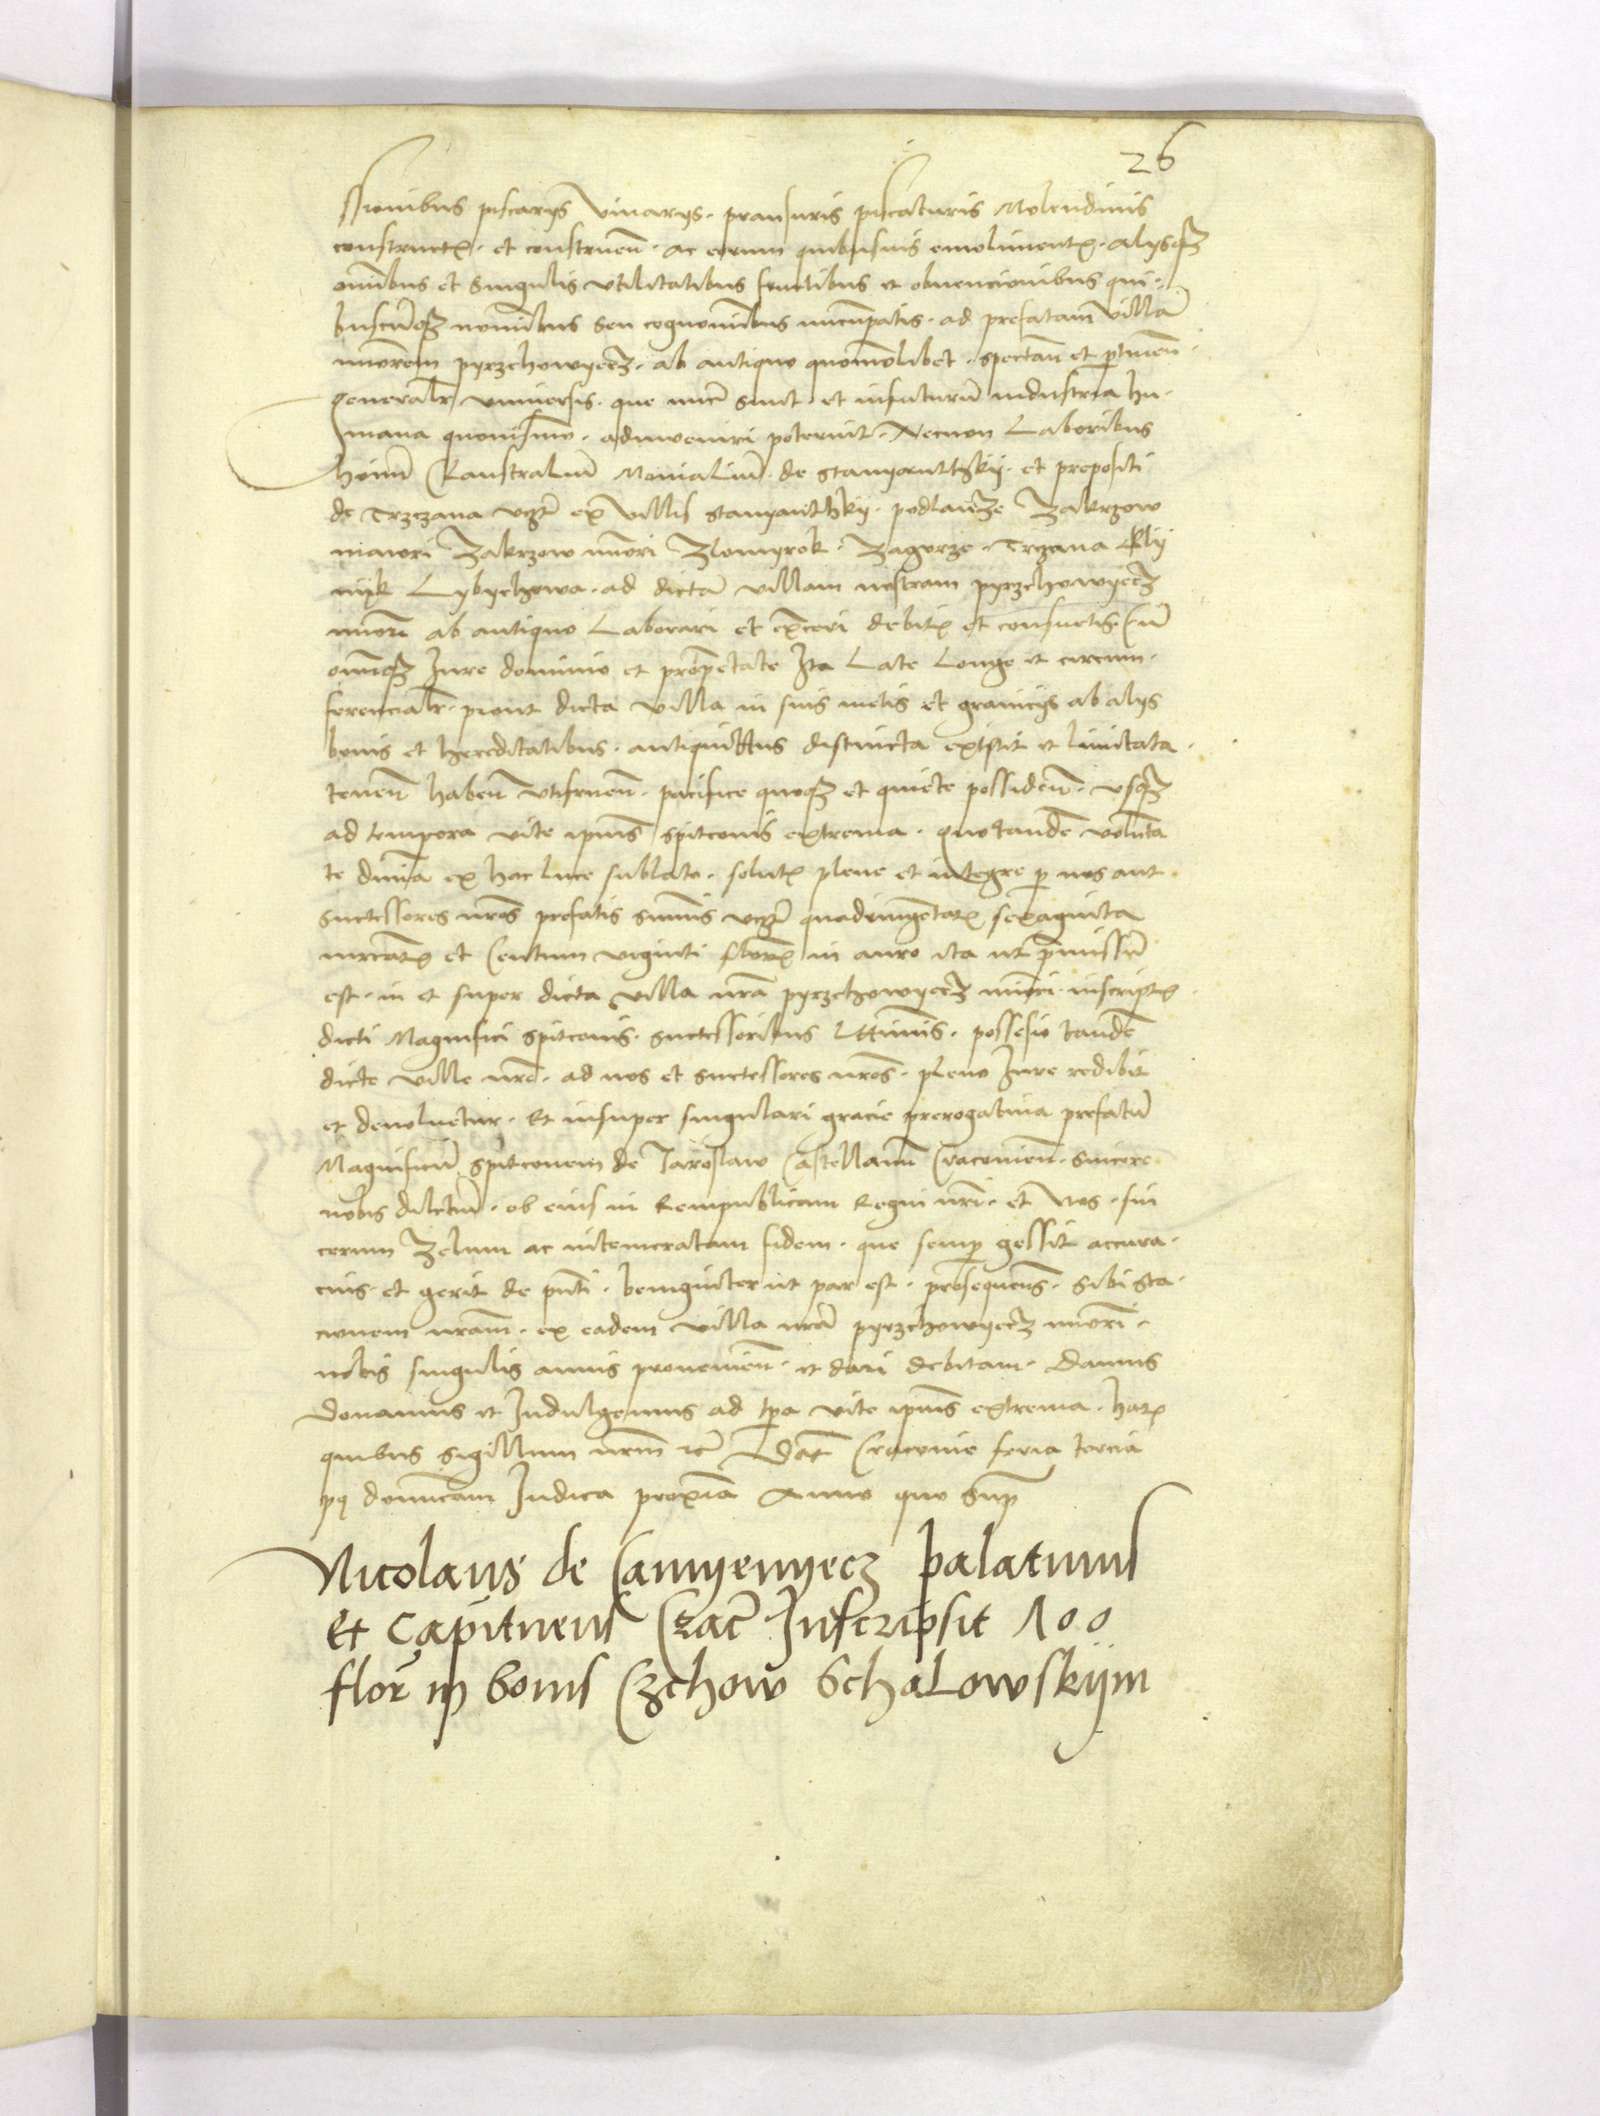 26
ssionibus piscarÿs vinarÿs. pransuris piscaturis Molendinis
construct. et construen. ac eorum quibusuis emoliment. alÿsqz
omibus et singulis vtilitatibus fructibus et obuencionibus qui
buscuqz nominibus seu cognominibus nuncupatis. ad prefatam villa
minorem pyrzchowyecz. ab antiquo quomolibet. spectan et ptinen
generalr vniuersis. que nuc sunt. et infuturu industria hu
mana quouismo. adinueniri poterunt. Necnon Laboribus
homi Claustraliu Monialiu de stanyanthkÿ. et prepositi
de Trzczana vczt ex villis stanyanthkÿ. podlanze Zakrzow
maiori Zakrzow miori Zlomyrok. Zagorze. Trczana Kly
nyk Lybychowa. ad dicta villam nostram pyrzchowyecz
miori ab antiquo Laborari et exceri debit et consuetis cu
omiqz Jure dominio et propetate Ita Late Longe et circum
ferencialr. prout dicta villa in suis metis et granicÿs ab alÿs
bonis et hereditatibus. antiquittus distincta existit et limitata
tenen haben vtifruen. pacifice quoqz et quiete possiden. vsqz
ad tempora vite ipius spitconis extrema. quo tande volunta
te diuina ex hac luce sublato. solut plene et integre p nos aut
successores nros prefatis sumis vczt quadringentar sexaginta
mrcar et Centum viginti flor in auro ita ut pmissu
est. in et super dicta villa nra pyrzchowyecz miori inscript
dicti Magnifici spitconis. successoribus Lttimis. possesio tande
dicte ville nre. ad nos et successores nros. pleno Jure redibit
et deuoluetur. Et insuper singulari gracie prerogatiua prefatu
Magnificu spitconem de Jaroslaw Castellanu Cracouien. sincere
nobis dilctu. ob eius in Rempublicam Regni nri. et Nos. sin
cerum Zelum ac intemeratam fidem. que semp gessit accura
cius. et gerit de pnti. benigniter ut par est. prosequens. sibi sta
cionem nram. ex eadem villa nra pyrzchowyecz miori.
nobis singulis annis prouenien. et dari debitam. Damus
Donamus et Indulgemus ad tpa vite ipius extrema. har
quibus sigillum nrm etc Dat Cracouie feria tercia
pq dominicam Judica proxia Anno quo sup
Nicolaus de Camyenyecz palatinus
Et Capitneus Crac Inscripsit 100
flor in bonis Czchow Schalowskym